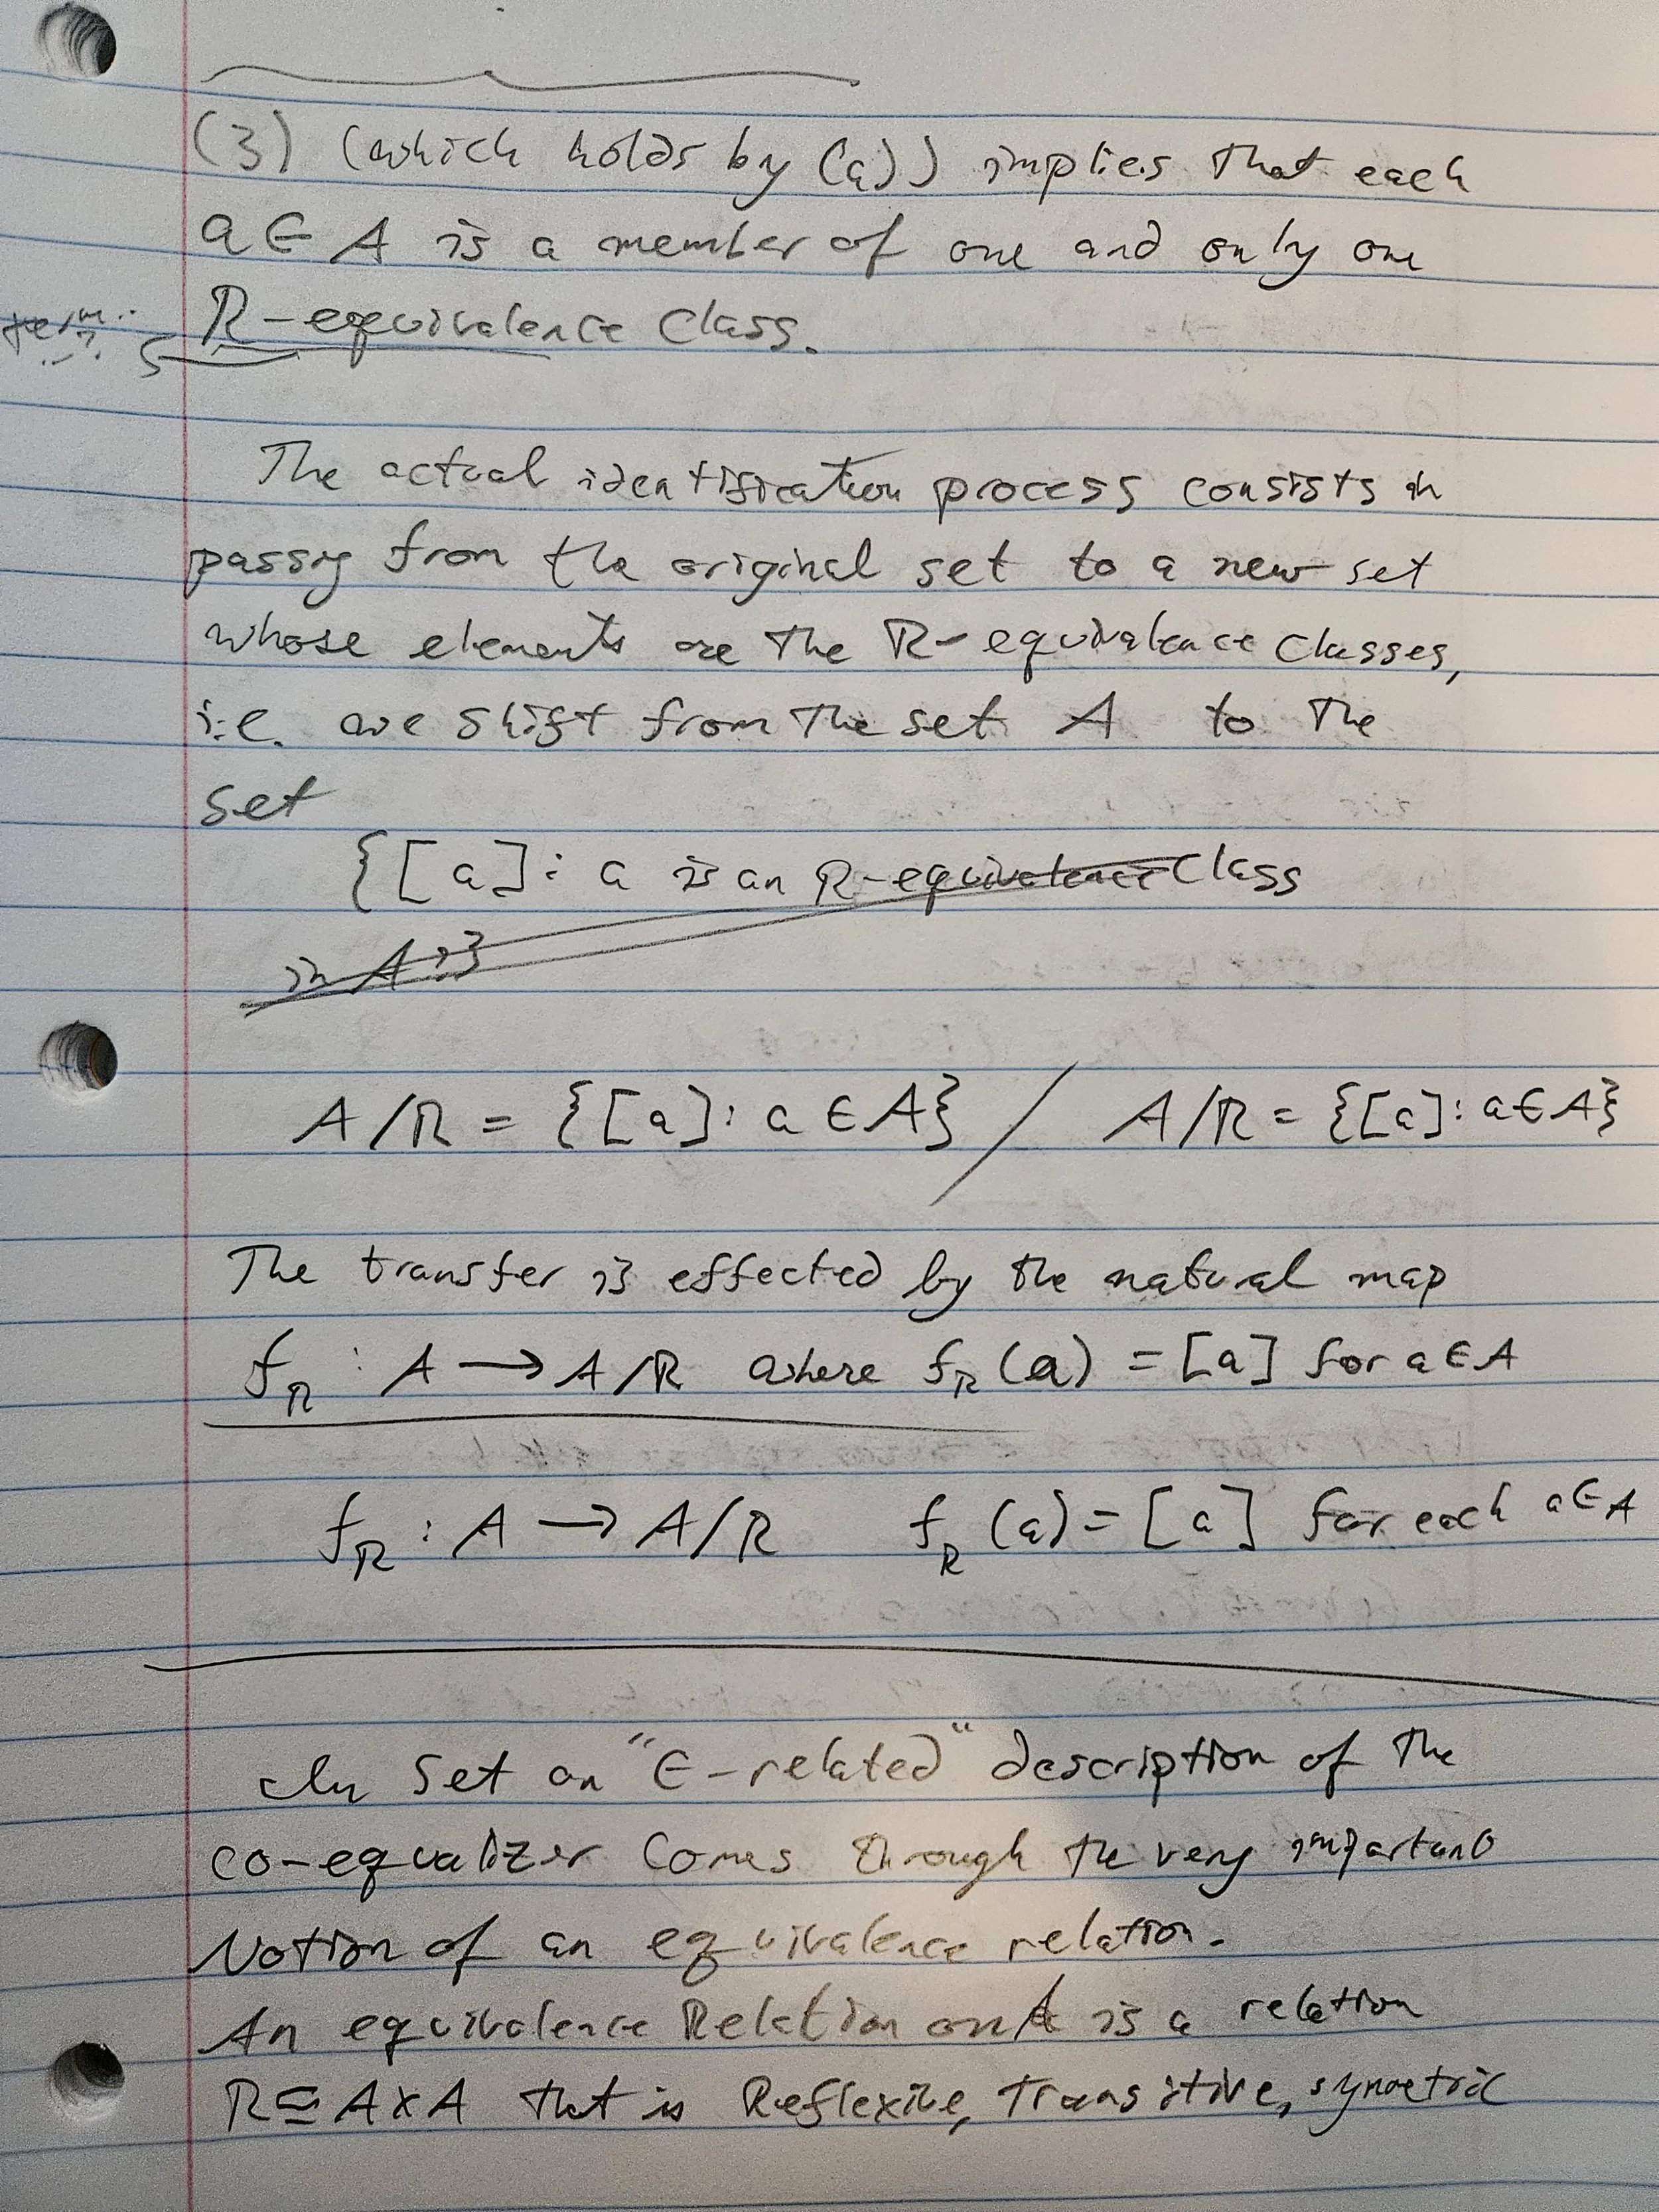 (3) (which holds by (a)) implies that each
a ∈ A is a member of one and only one
R-equivalence class.
The actual identification process consists in
passing from the original set to a new set
whose elements are the R-equivalence classes,
i.e. we shift from the set A to the
set
{[a]: a is an R-equivalence class
in A
A/R = {[a]: a ∈ A} / A/R = {[a]: a ∈ A}
The transfer is effected by the natural map
f_R : A → A/R where f_R(a) = [a] for a ∈ A
f_R : A → A/R f_R(a) = [a] for each a ∈ A
In Set an "∈-related" description of the
co-equalizer comes through the very important
Notion of an equivalence relation.
An equivalence Relation on A is a relation
R ⊆ A × A that is Reflexive, Transitive, symetric